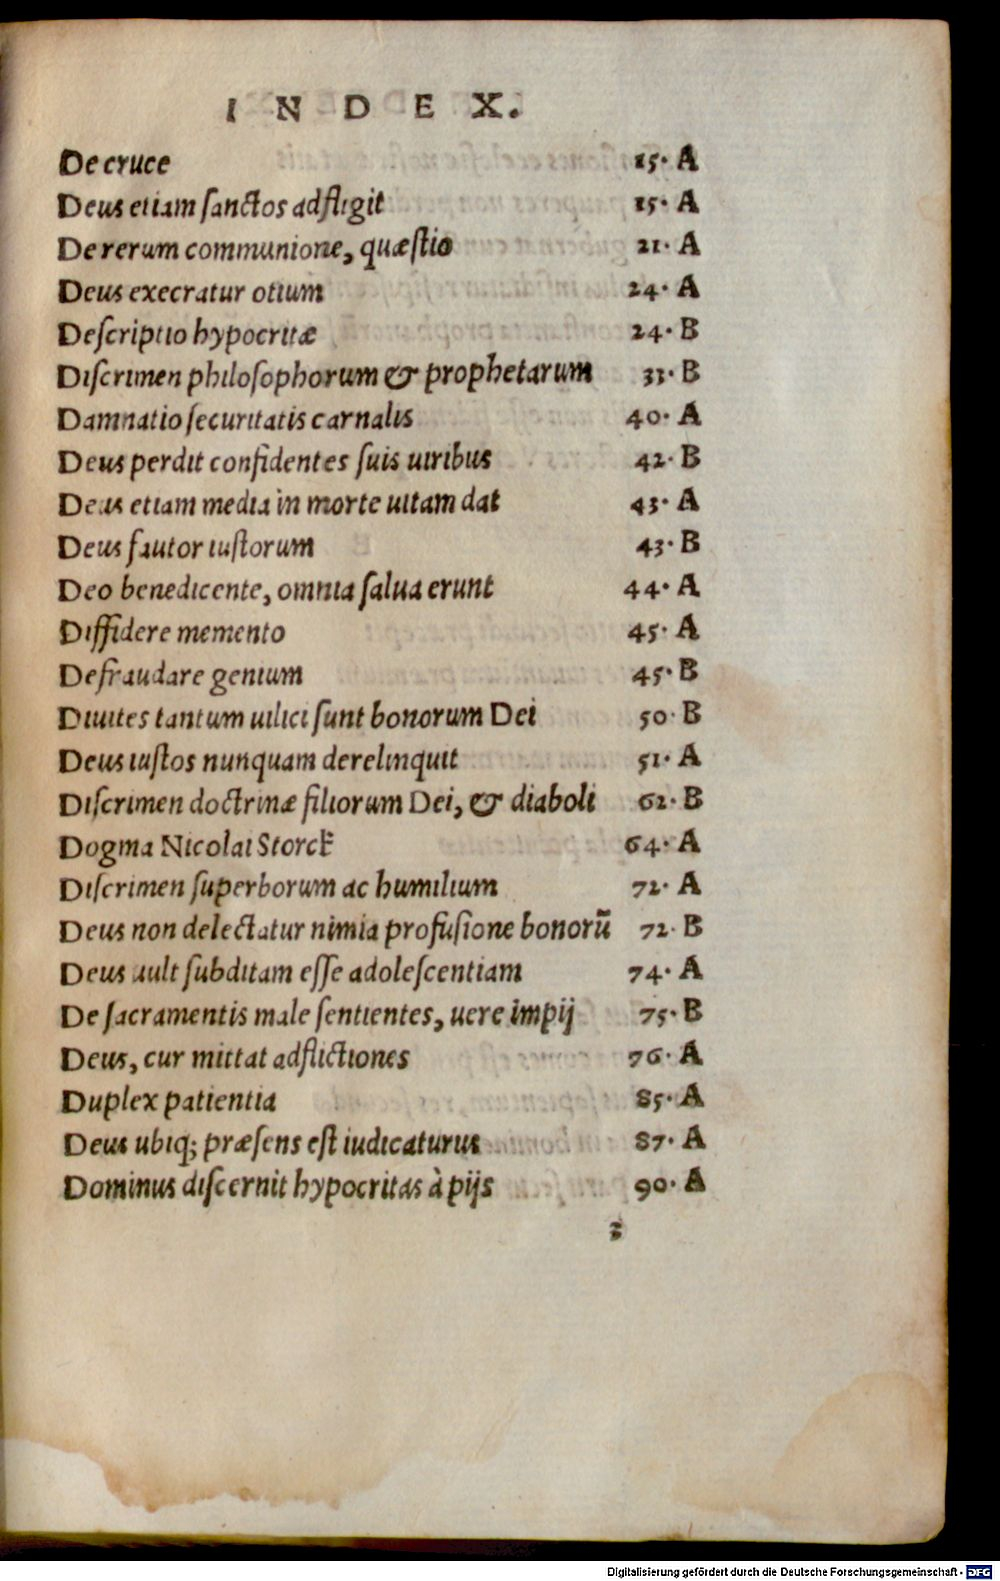 INDEX.
De cruce 15. A
Deus etiam ſanctos adfligit 15. A
De rerum communione, quæſtio 21. A
Deus execratur otium 24. A
Deſcriptio hypocritæ 24. B
Diſcrimen philoſophorum & prophetarum 33. B
Damnatio ſecuritatis carnalis 40. A
Deus perdit confidentes ſuis uiribus 42. B
Deus etiam media in morte uitam dat 43. A
Deus fautor iuſtorum 43. B
Deo benedicente, omnia ſalua erunt 44. A
Diffidere memento 45. A
Defraudare genium 45. B
Diuites tantum uilici ſunt bonorum Dei 50. B
Deus iuſtos nunquam derelinquit 51. A
Diſcrimen doctrinæ filiorum Dei, & diaboli 62. B
Dogma Nicolai Storck̃ 64. A
Diſcrimen ſuperborum ac humilium 72. A
Deus non delectatur nimia profuſione bonorũ 72. B
Deus uult ſubditam eſſe adoleſcentiam 74. A
De ſacramentis male ſentientes, uere impij 75. B
Deus, cur mittat adflictiones 76. A
Duplex patientia 85. A
Deus ubiq; præſens eſt iudicaturus 87. A
Dominus diſcernit hypocritas à pijs 90. A
3
Digitalisierung gefördert durch die Deutsche Forschungsgemeinschaft - DFG